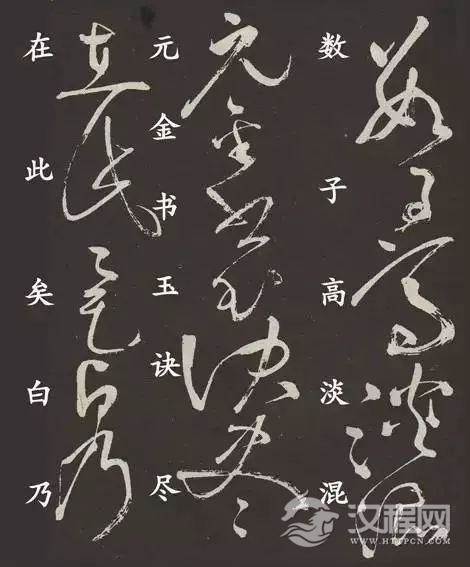 数子高淡混
元金书玉诀尽
在此矣白乃
汉程网
WWW.HTTPCN.COM